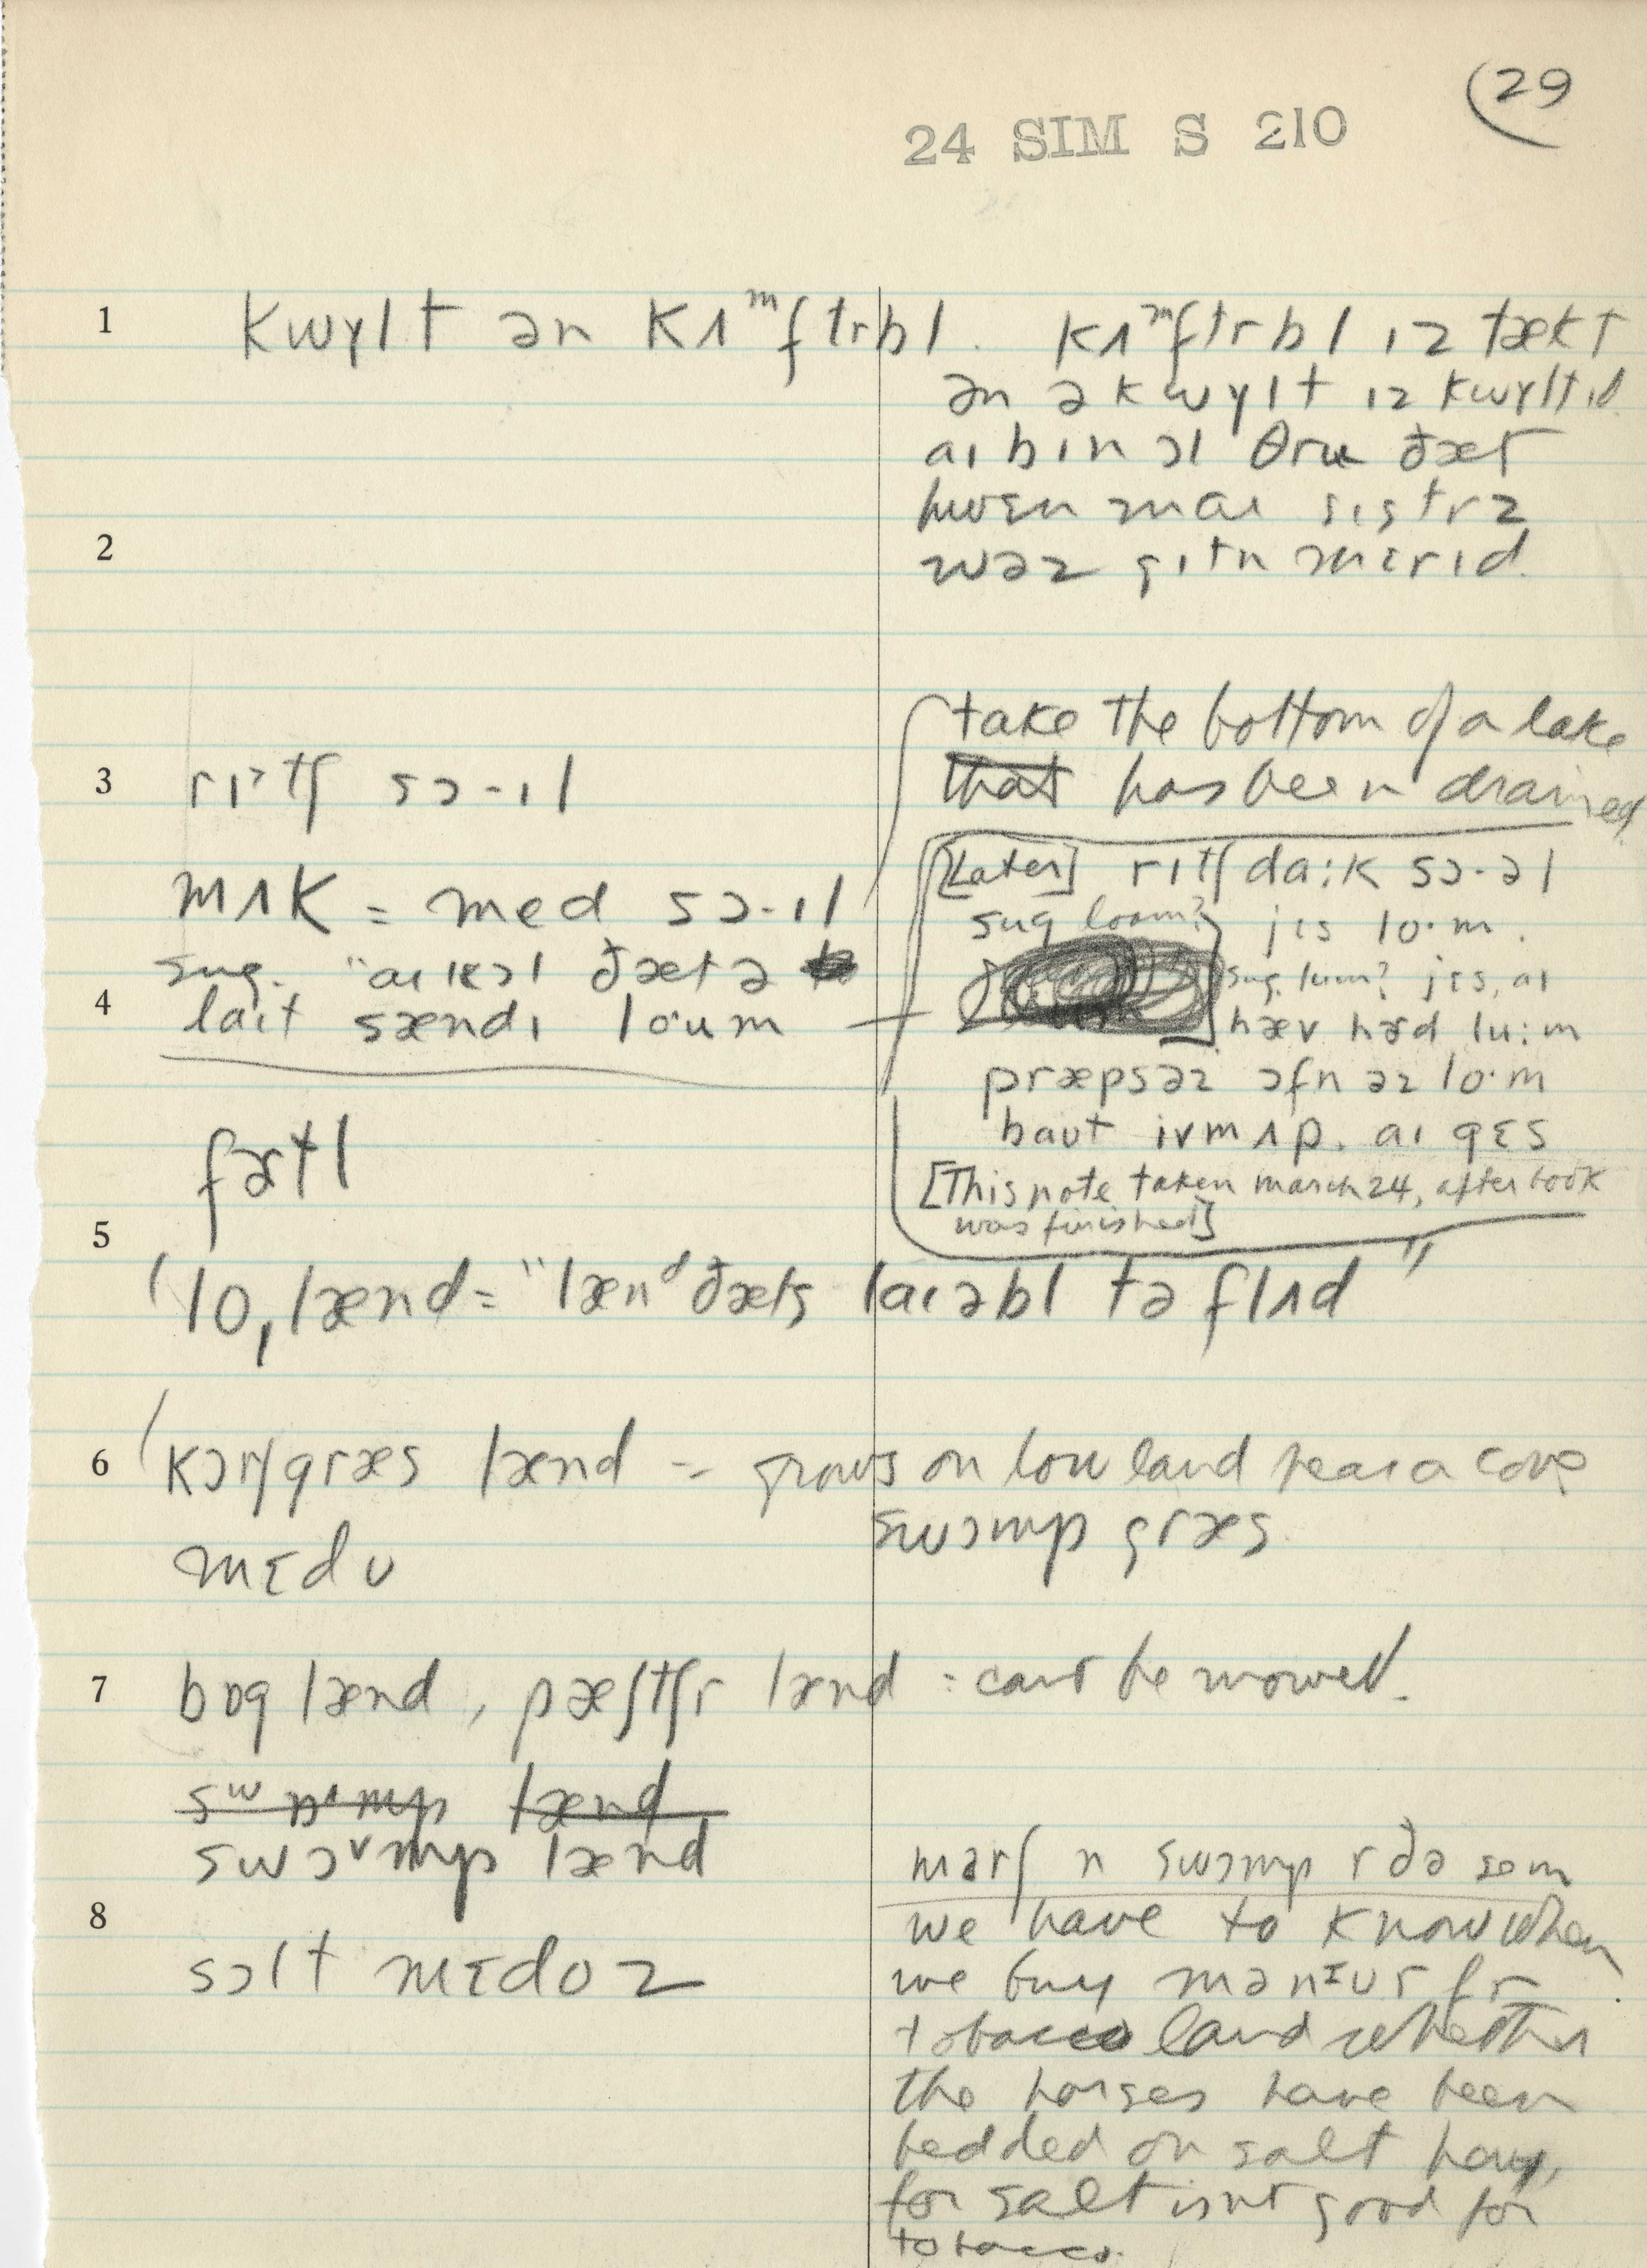 (29
24 SIM S 210
1 kwɤlt ən kʌᵐftrbl. kʌᵐftrbl ɪz tækt
ən ə kwɤlt ɪz kwɤltɪd.
aɪ bɪn ɔl θru ðæt
hwɛn maɪ sɪstrz
2 wəz gɪtn mɛrɪd.
take the bottom of a lake
that has been drained
3 rɪᵊtʃ sɔ-ɪl
[Later] rɪtʃ da:k sɔ-əl
mʌk = med sɔ-ɪl
sug loam? jɛs lo·m.
sug. "aɪ kɔl ðæt ə
sug. lum? jɛs, aɪ
4 laɪt sændɪ loum
hæv hɜd lu:m
præpsəz ɔfn əz lo·m
baut ivm ʌp. aɪ gɛs
[This note taken march 24, after book
was finished]
5 fɜtl
(lo, lænd = "lænᵈ ðæts laɪəbl tə flʌd"
6 (kɔrʃgræs lænd - grows on low land near a cove
swɔmp græs.
mɛdʊ
7 bɒg lænd, pæʃtʃr lænd : can't be mowed.
swɒmp lænd
swɔᵛmp lænd
marʃ n swɔmp r ðə sem
8 we have to know when
sɔlt mɛdoz
we buy mənɪur fr
tobacco land whether
the horses have been
bedded on salt hay,
for salt isnt good for
tobacco.